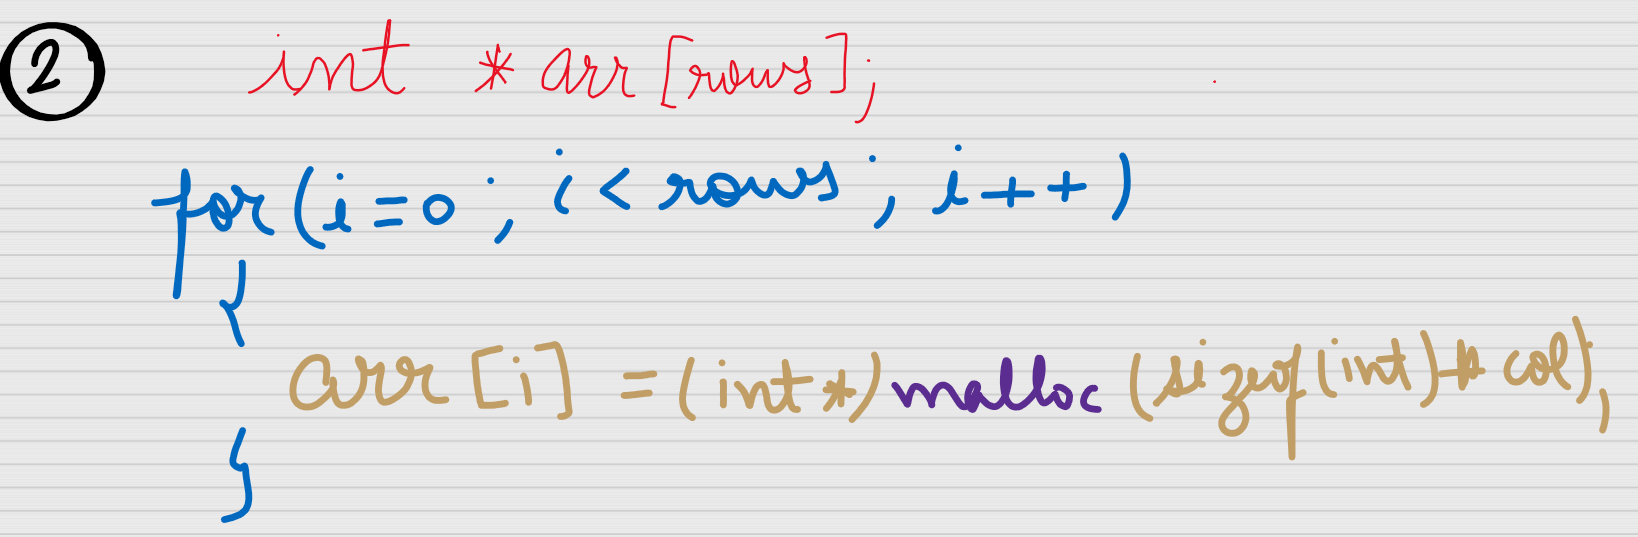 2 int *arr[rows];
for(i=0; i<rows; i++)
{
arr[i] = (int*)malloc(sizeof(int)*col);
}